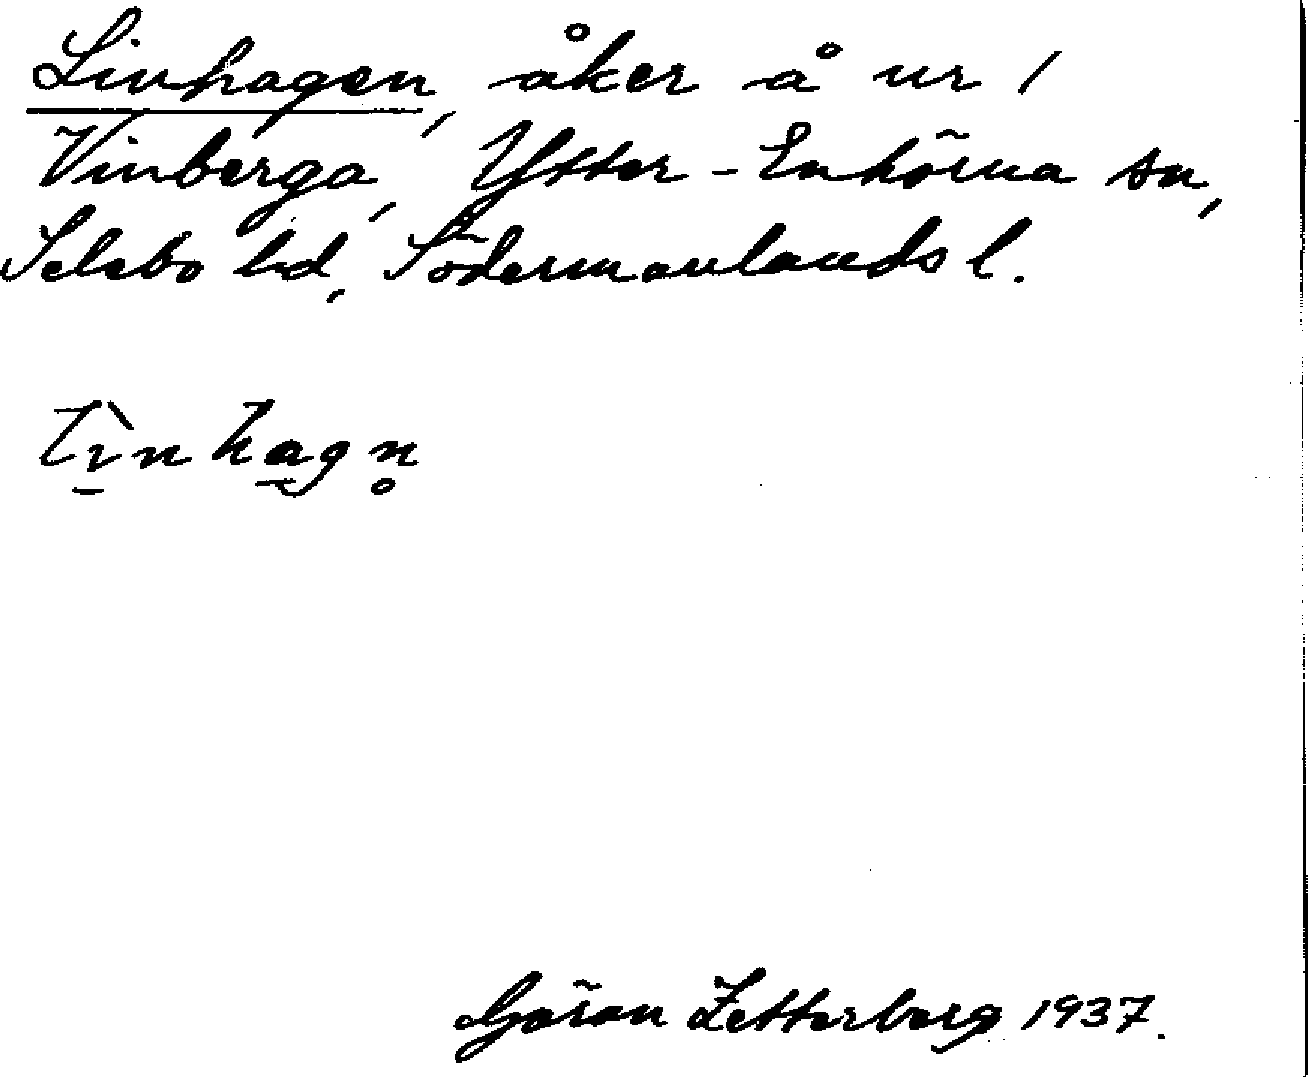 Linhagen, åker å ur 1
Vinberga, Ytter-Enhörna sn,
Selebo hd, Södermanlands l.
lı̀nhagn̥
Göran Zetterberg 1937.